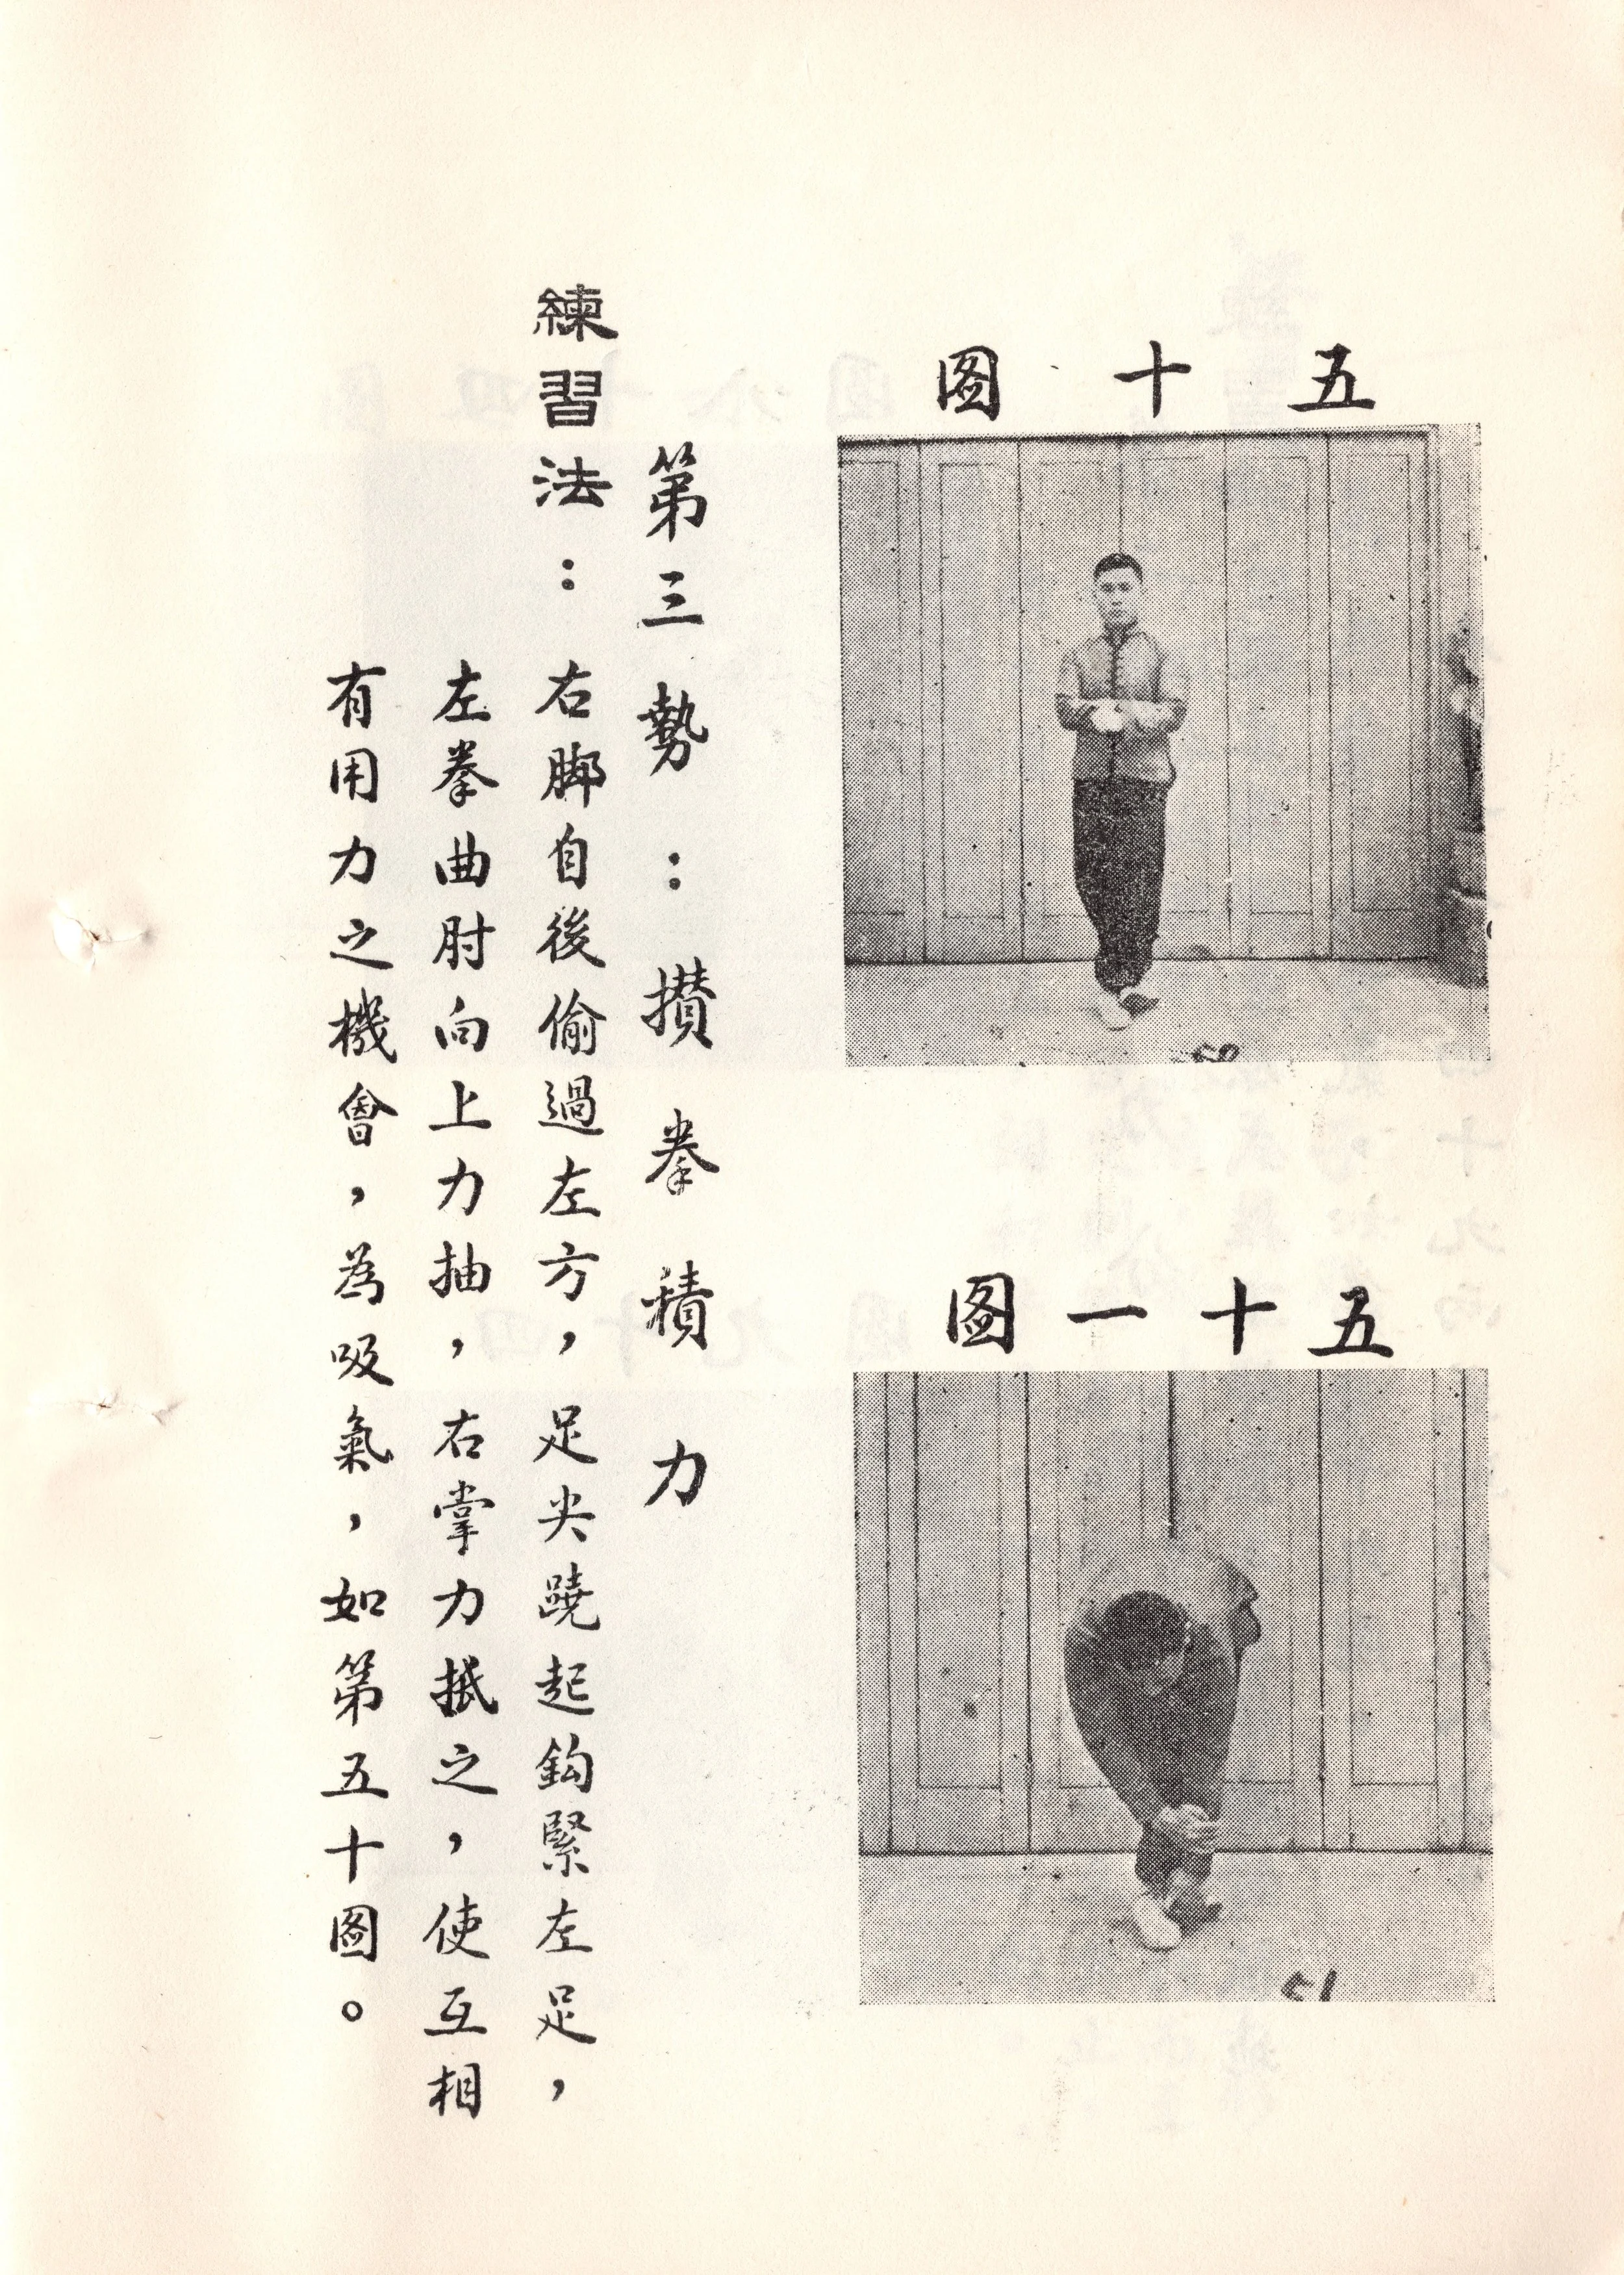 五十图
五十一图
第三勢：攢拳積力
練習法：右脚自後偷過左方，足尖蹺起鈎緊左足，
左拳曲肘向上力抽，右掌力抵之，使互相
有用力之機會，為吸氣，如第五十圖。
51